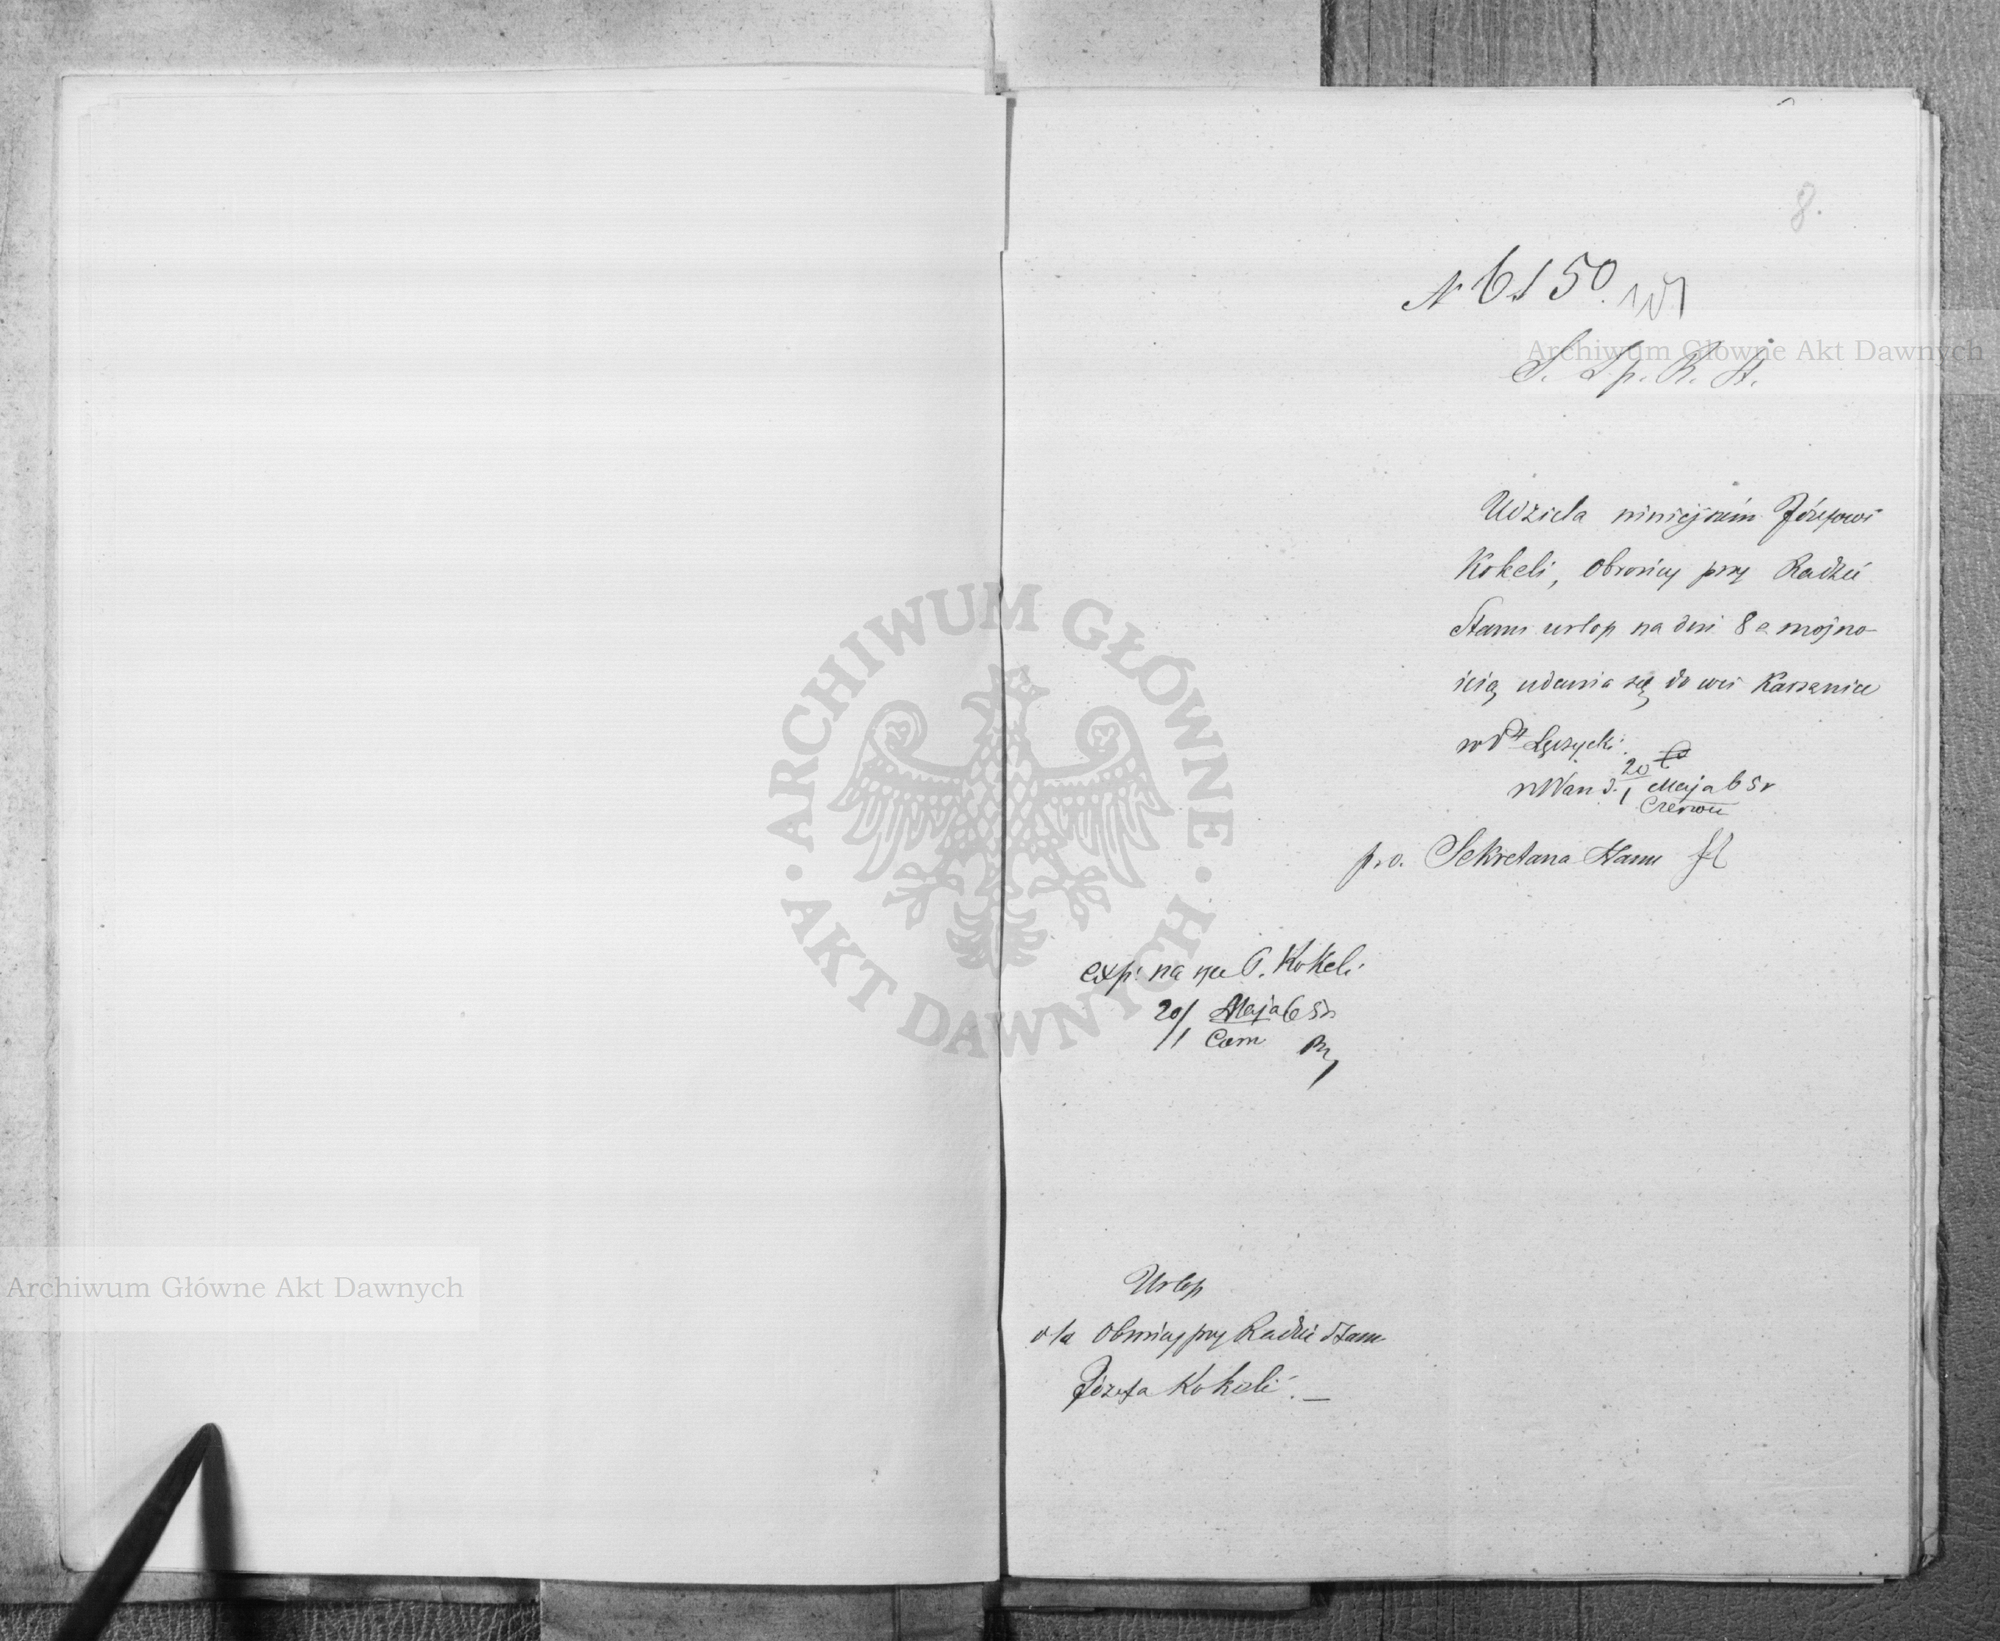 8.
N 6150.
S. Sp. R. St.
Udziela niniejszém Józefowi
Kokeli, Obrońcy przy Radzie
Stanu urlop na dni 8 z możno-
ścią udania się do wsi Karsznice
w Pt Łęczycki.
w War d. 20/1 Maja/Czerwca 65 r
p. o. Sekretarza Stanu
exp: na ręce P. Kokeli
20/1 Maja 65 r
Czerw
Urlop
dla Obrońcy przy Radzie Stanu
Józefa Kokeli. —
Archiwum Główne Akt Dawnych
Archiwum Główne Akt Dawnych
ARCHIWUM GŁÓWNE · AKT DAWNYCH ·